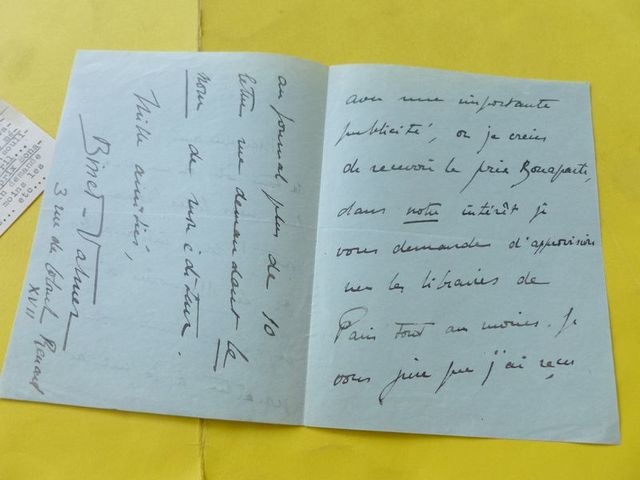 avec une importante
publicité, or je crains
de recevoir le prix Bonaparte,
dans notre intérêt je
vous demande d'approvision
ner les libraires de
Paris tout au moins. Je
vous jure que j'ai reçu
au journal plus de 10
lettres me demandant le
nom de mon éditeur.
Mille amitiés,
Binet-Valmer
3 rue du Colonel Renard
XVII
etc...